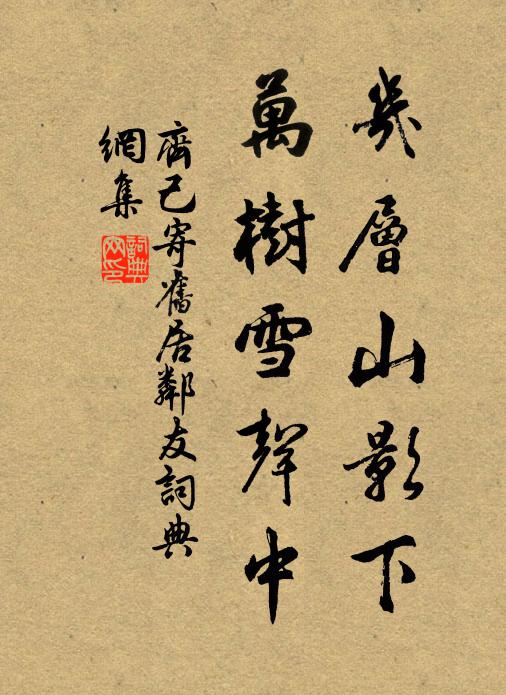 幾層山影下
萬樹雪聲中
齊己寄舊居鄰友詞典
網集
詞典
网印